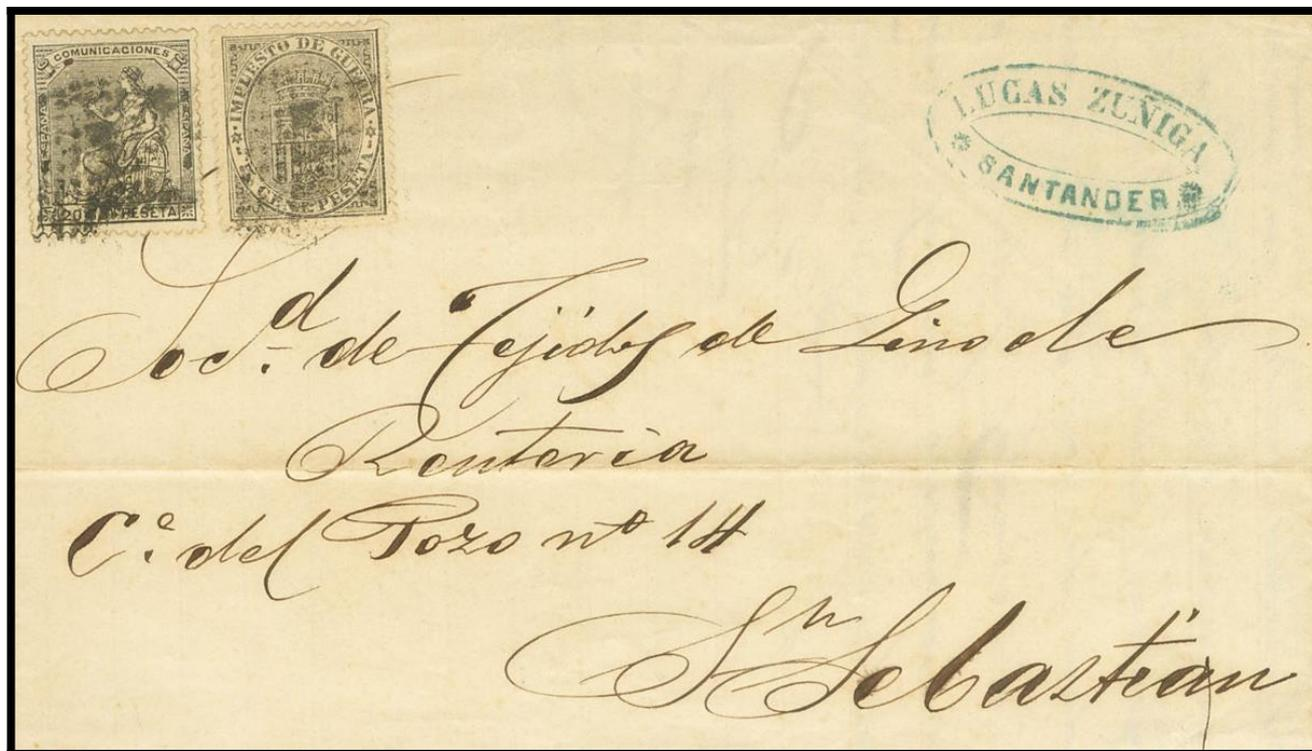 COMUNICACIONES
ESPAÑA
ESPAÑA
20 PESETA
IMPUESTO DE GUERRA
5 CENT. PESETA
LUCAS ZUÑIGA
SANTANDER
Socd. de Tejidos de Lino de
Renteria
Ce. del Pozo nº 14
Sn Sebastian